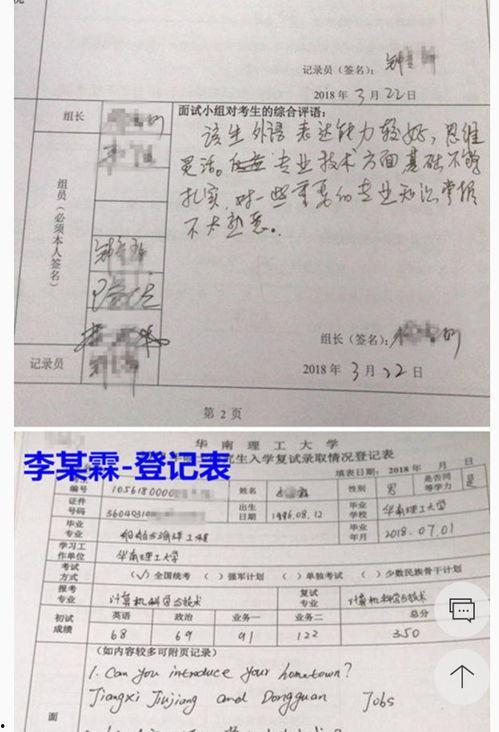 记录员（签名）：
2018 年 3 月 22 日
组长
面试小组对考生的综合评语：
该生外语表达能力较好，思维
灵活。但在专业技术方面基础不够
扎实，对一些重要的专业知识掌握
不太熟悉。
组员（必须本人签名）
组长（签名）：
记录员
2018 年 3 月 22 日
第 2 页
华南理工大学
李某霖-登记表
究生入学复试录取情况登记表
填表日期：2018 年 月 日
编号
1056180000
姓名
性别
男
是否同等学力
是
证件号码
36040310
出生日期
1996.08.12
毕业学校
华南理工大学
毕业专业
船舶与海洋工程
毕业年月
2018.07.01
学习工作单位
华南理工大学
考试方式
（√）全国统考 （ ）强军计划 （ ）单独考试 （ ）少数民族骨干计划
报考专业
计算机科学与技术
复试专业
计算机科学与技术
初试成绩
英语 政治 业务一 业务二 总分
68 69 91 122 350
（如内容较多可附页记录）
1. Can you introduce your hometown?
Jiangxi Jiujiang and Dongguan Jobs
面